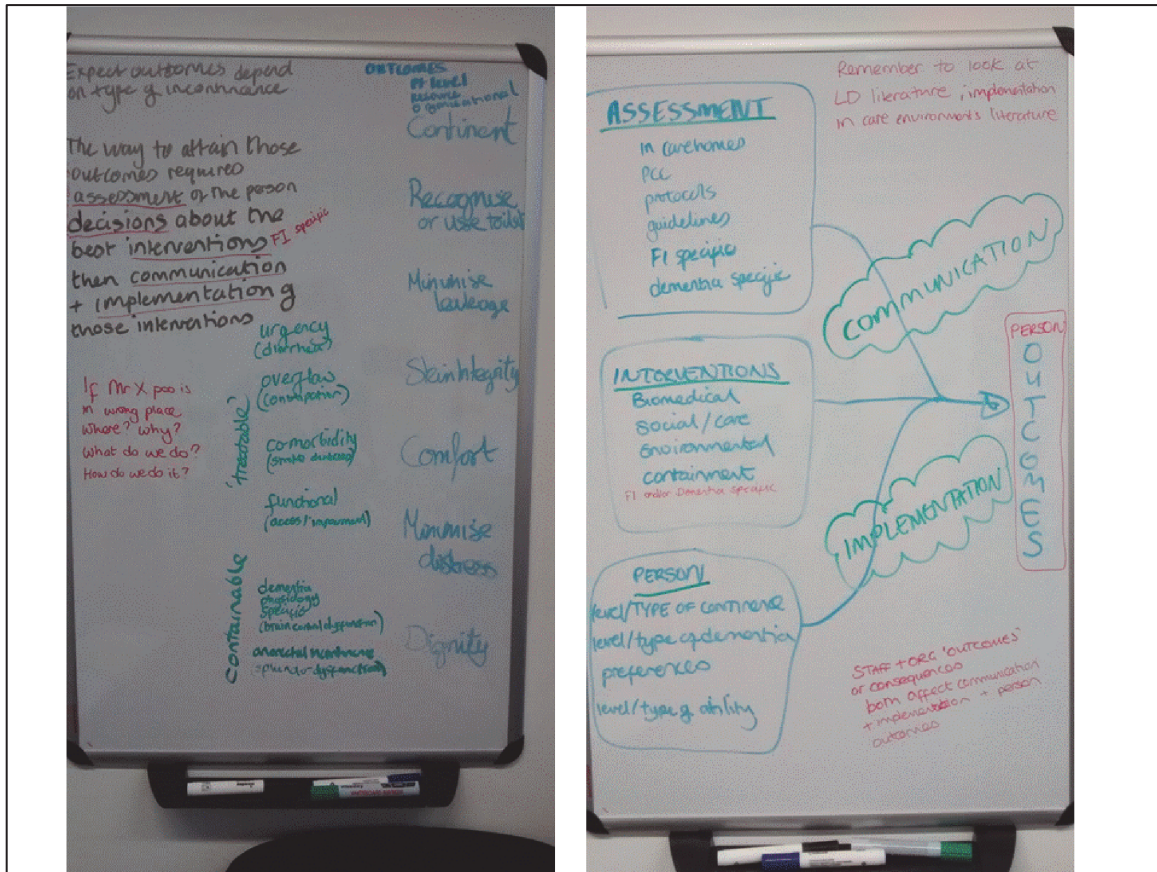 Expect outcomes depend
on type of incontinance
The way to attain those
outcomes required
assessment of the person
decisions about the
best interventions FI specific
then communication
+ implementation of
those interventions
If Mr X poo is
in wrong place
Where? Why?
What do we do?
How do we do it?
'treatable'
urgency
(diarrhoea)
overflow
(constipation)
co-morbidity
functional
(access/impairment)
containable
dementia
physiology
specific
OUTCOMES
Pt level
Resource
Organisational
Continent
Recognise
or use toilet
Minimise
leakage
Skin Integrity
Comfort
Minimise
distress
Dignity
Remember to look at
LD literature, implementation
in care environments literature
ASSESSMENT
in carehomes
PCC
protocols
guidelines
FI specific
dementia specific
INTERVENTIONS
Biomedical
Social/care
Environmental
containment
FI and/or Dementia specific
PERSON
level/TYPE OF CONTINENCE
level/type of dementia
preferences
level/type of ability
COMMUNICATION
IMPLEMENTATION
PERSON
OUTCOMES
STAFF + ORG 'OUTCOMES'
or consequences
both affect communication
+ implementation + person
outcomes